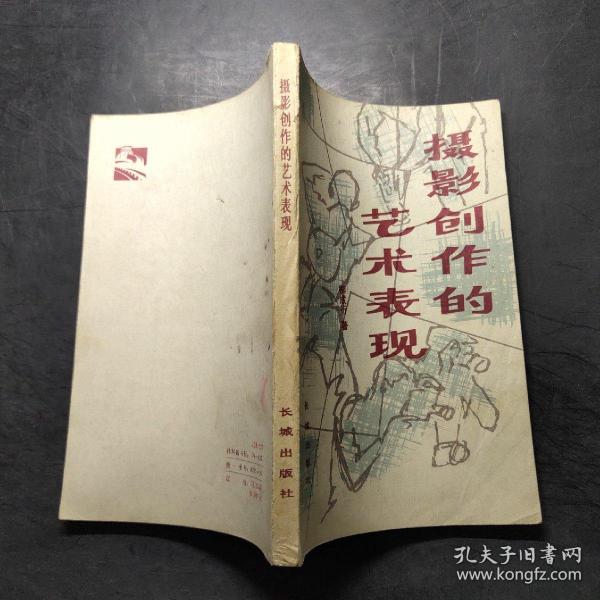 摄影创作的
艺术表现
著
摄影创作的艺术表现
长城出版社
孔夫子旧书网
www.kongfz.com